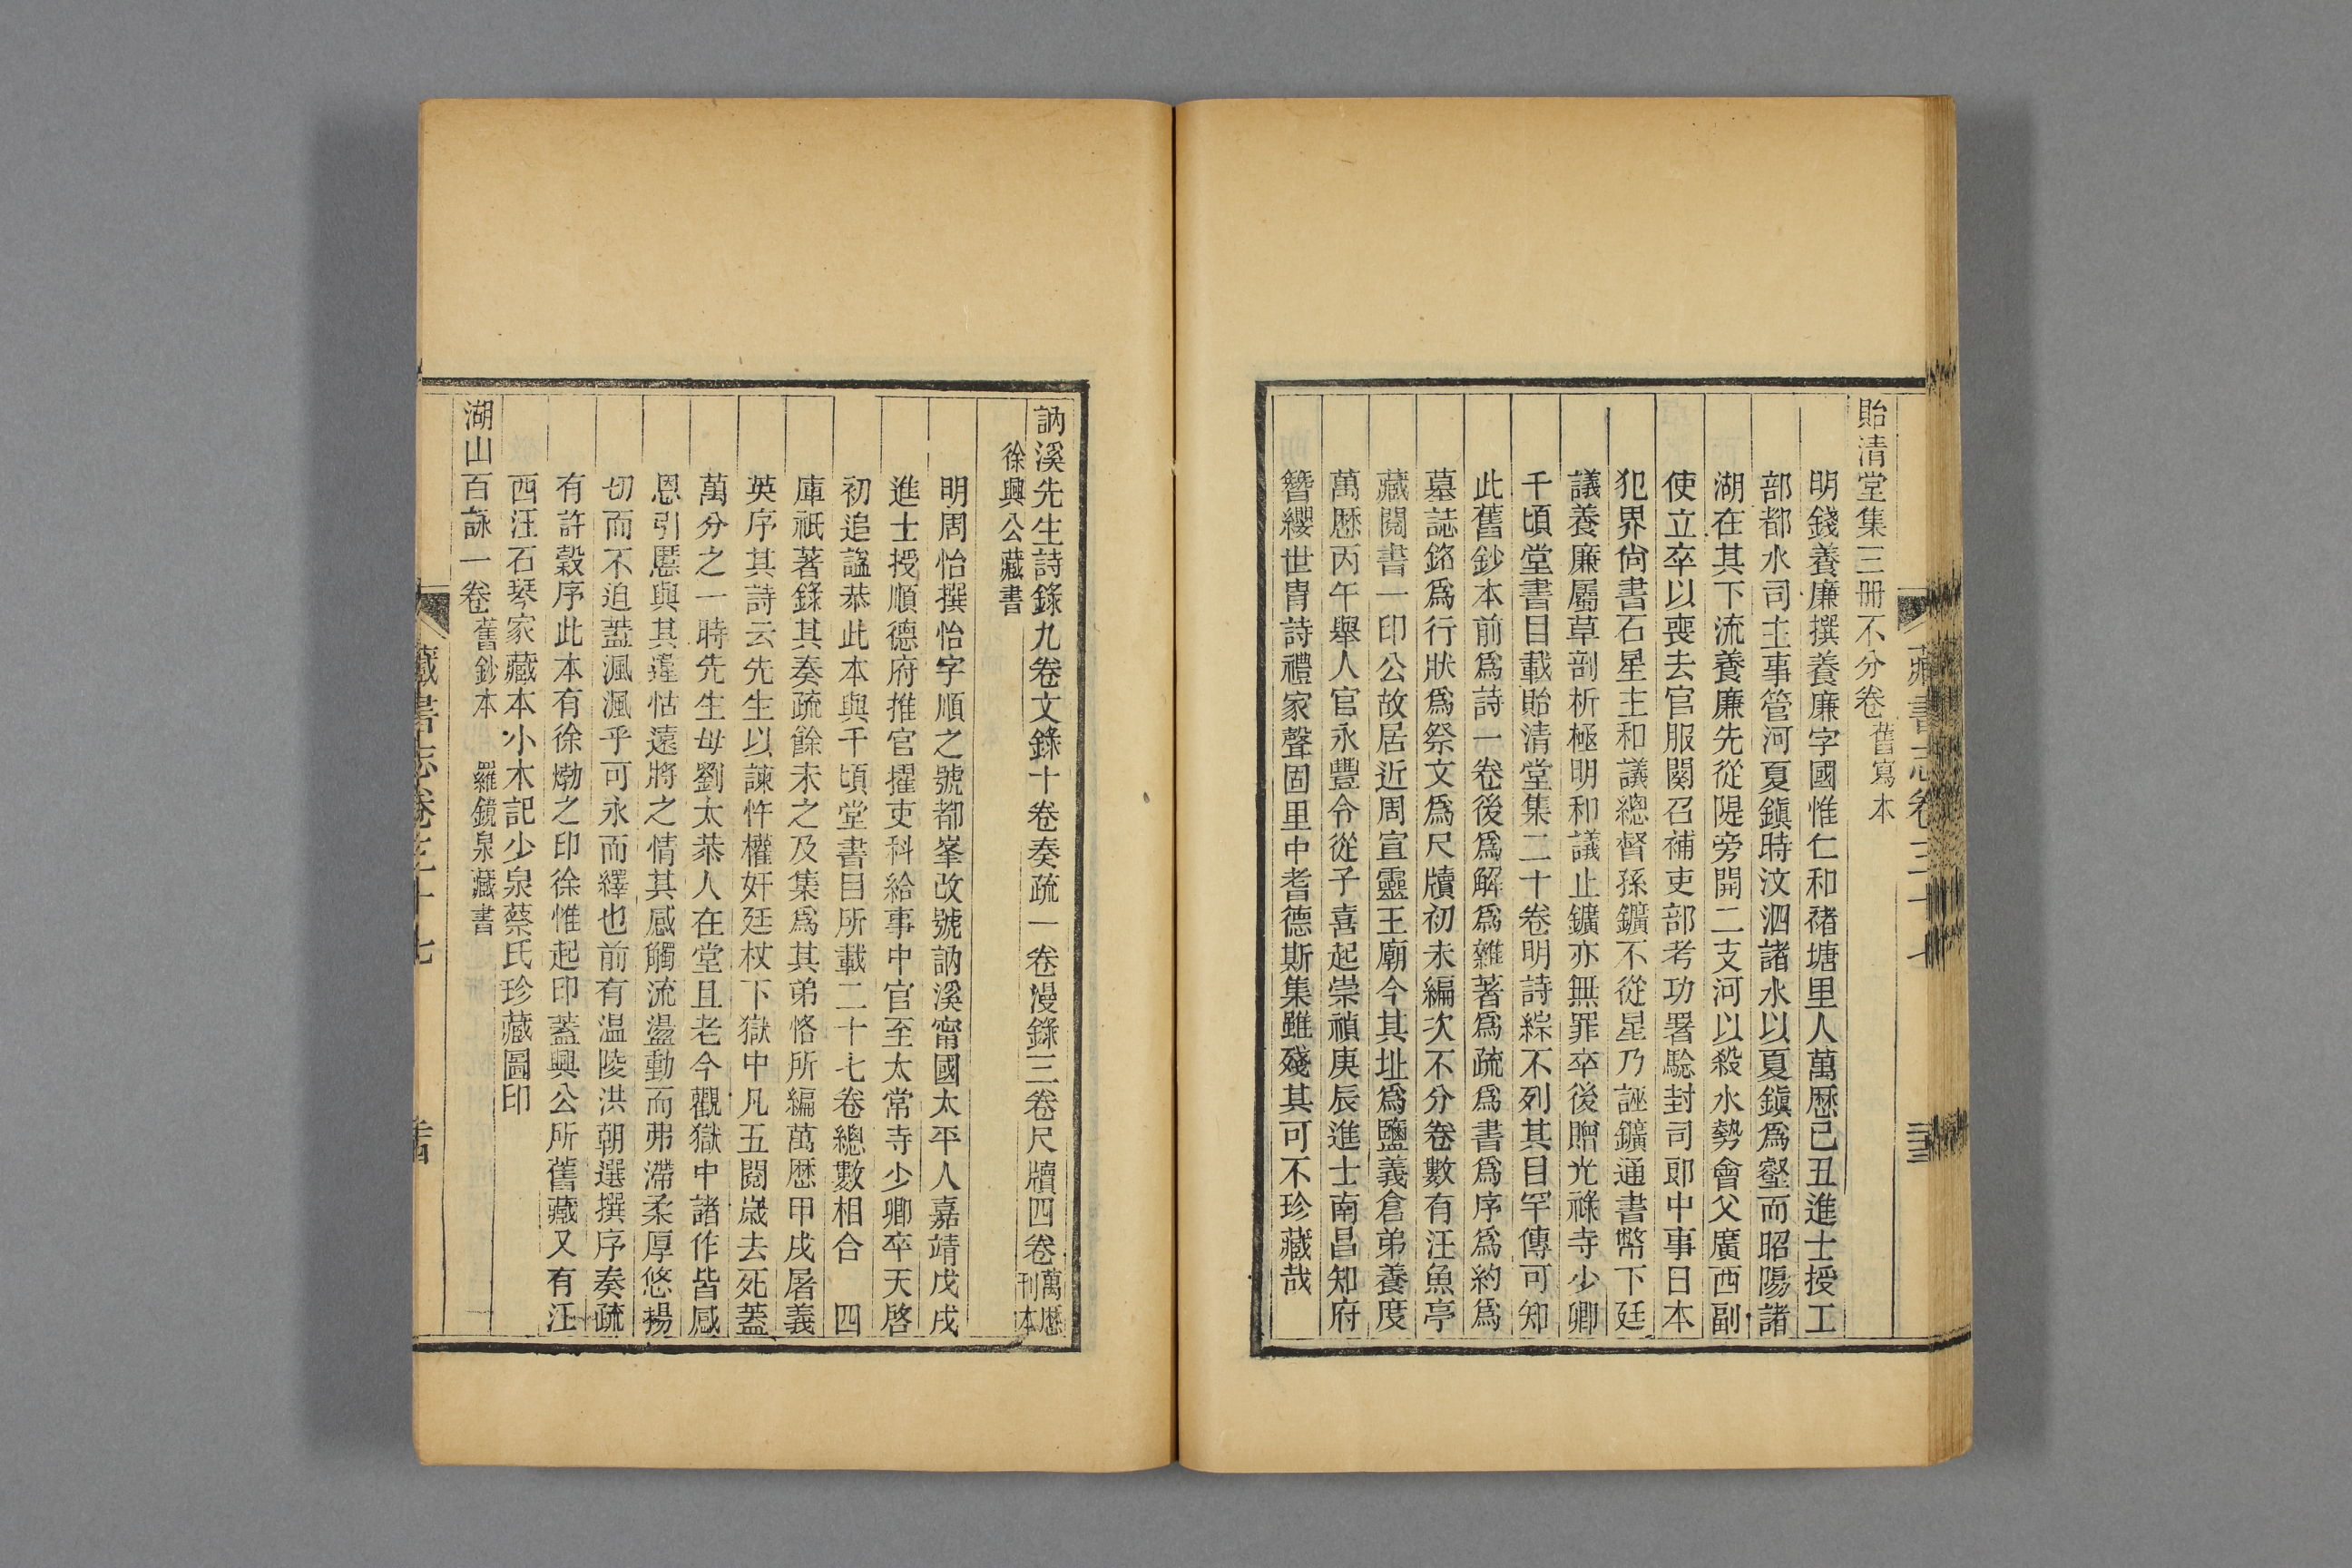 藏書志卷三十七
貽清堂集三冊不分卷舊寫本
明錢養廉撰養廉字國惟仁和褚塘里人萬歷己丑進士授工
部都水司主事管河夏鎭時汶泗諸水以夏鎭爲壑而昭陽諸
湖在其下流養廉先從隄旁開二支河以殺水勢會父廣西副
使立卒以喪去官服闋召補吏部考功署驗封司郎中事日本
犯界尙書石星主和議總督孫鑛不從星乃誣鑛通書幣下廷
議養廉屬草剖析極明和議止鑛亦無罪卒後贈光祿寺少卿
千頃堂書目載貽清堂集二十卷明詩綜不列其目罕傳可知
此舊鈔本前爲詩一卷後爲解爲雜著爲疏爲書爲序爲約爲
墓誌銘爲行狀爲祭文爲尺牘初未編次不分卷數有汪魚亭
藏閱書一印公故居近周宣靈王廟今其址爲鹽義倉弟養度
萬歷丙午舉人官永豐令從子喜起崇禎庚辰進士南昌知府
簪纓世胄詩禮家聲固里中耆德斯集雖殘其可不珍藏哉
訥溪先生詩錄九卷文錄十卷奏疏一卷漫錄三卷尺牘四卷萬歷刊本
徐興公藏書
明周怡撰怡字順之號都峯改號訥溪甯國太平人嘉靖戊戌
進士授順德府推官擢吏科給事中官至太常寺少卿卒天啓
初追謚恭此本與千頃堂書目所載二十七卷總數相合 四
庫祇著錄其奏疏餘未之及集爲其弟恪所編萬歷甲戌屠義
英序其詩云先生以諫忤權奸廷杖下獄中凡五閱歲去死蓋
萬分之一時先生母劉太恭人在堂且老今觀獄中諸作皆感
恩引慝與其瞻怙遠將之情其感觸流盪動而弗滯柔厚悠揚
切而不迫蓋渢渢乎可永而繹也前有温陵洪朝選撰序奏疏
有許穀序此本有徐𤊹之印徐惟起印蓋興公所舊藏又有汪
西汪石琴家藏本小木記少泉蔡氏珍藏圖印
湖山百詠一卷舊鈔本 羅鏡泉藏書
藏書志卷三十七